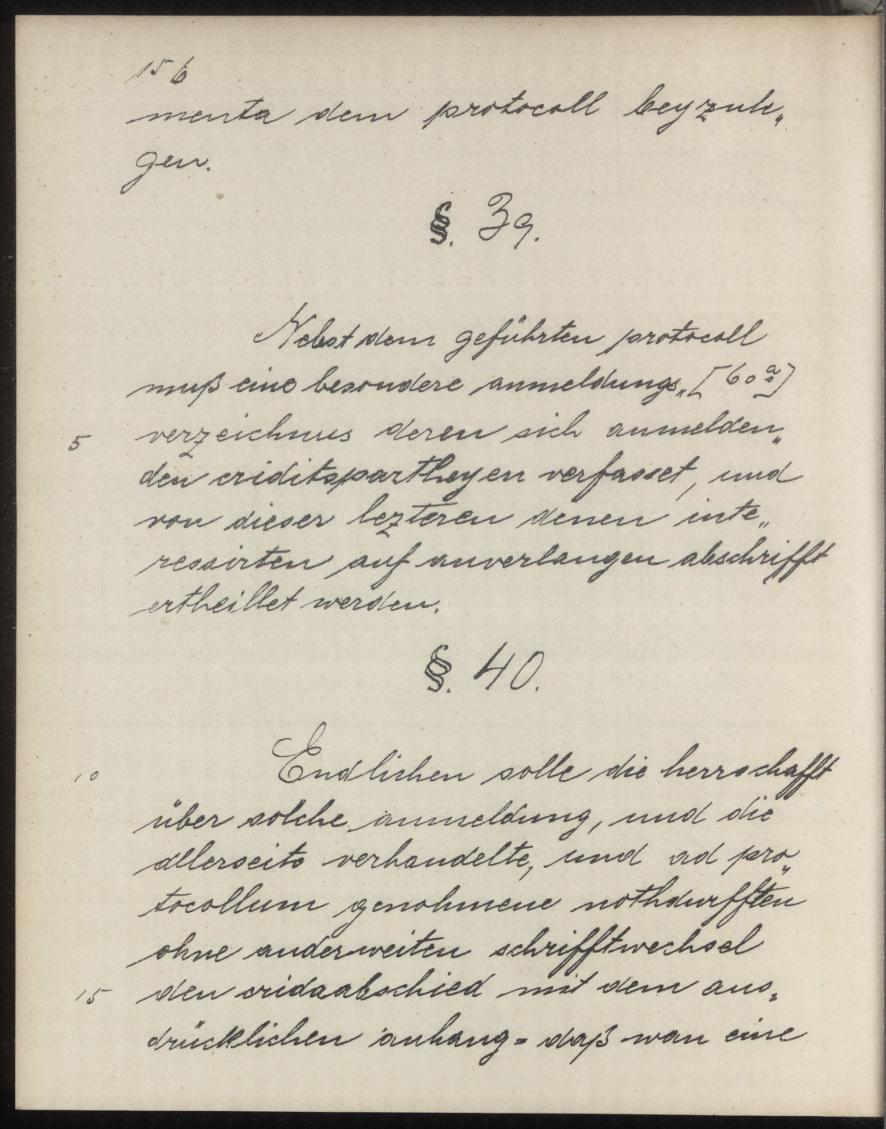 156
menta dem protocoll beyzule„
gen.
§. 39.
Nebst dem geführten protocoll
muß eine besondere anmeldungs„ [60a]
5 verzeichnus deren sich anmelden„
den criditspartheyen verfasset, und
von dieser lezteren denen inte„
ressirten auf anverlangen abschrifft
ertheillet werden.
§. 40.
10 Endlichen solle die herrschafft
über solche anmeldung, und die
allerseits verhandelte, und ad pro„
tocollum genohmene nothdurfften
ohne anderweiten schrifftwechsel
15 den cridaabschied mit dem aus„
drücklichen anhang = daß wan eine